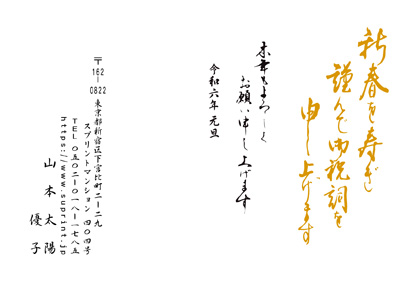 新春を寿ぎ
謹んで御祝詞を
申し上げます
本年もよろしく
お願い申し上げます
令和六年 元旦
〒162-0822
東京都新宿区下宮比町二ー二九
スプリントマンション 四〇四号
TEL〇五〇ー二〇一八ー一七八五
https://www.suprint.jp
山本太陽
優子